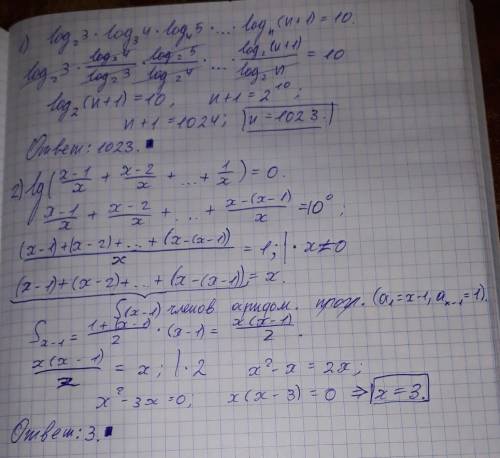 1) log₂3 · log₃4 · log₄5 · ... · logₙ(n+1) = 10.
log₂3 · log₂4/log₂3 · log₂5/log₂4 · ... · log₂(n+1)/log₂n = 10
log₂(n+1) = 10, n+1 = 2¹⁰;
n+1 = 1024; n = 1023.
Ответ: 1023.
2) lg((x-1)/x + (x-2)/x + ... + 1/x) = 0.
(x-1)/x + (x-2)/x + ... + (x-(x-1))/x = 10⁰;
((x-1)+(x-2)+...+(x-(x-1)))/x = 1; | · x≠0
(x-1)+(x-2)+...+(x-(x-1)) = x.
S(x-1) членов арифм. прогр. (a₁=x-1, aₓ₋₁=1).
Sₓ₋₁ = (1+(x-1))/2 · (x-1) = x(x-1)/2.
x(x-1)/2 = x; | · 2 x²-x = 2x;
x²-3x = 0; x(x-3) = 0 ⇒ x = 3.
Ответ: 3.